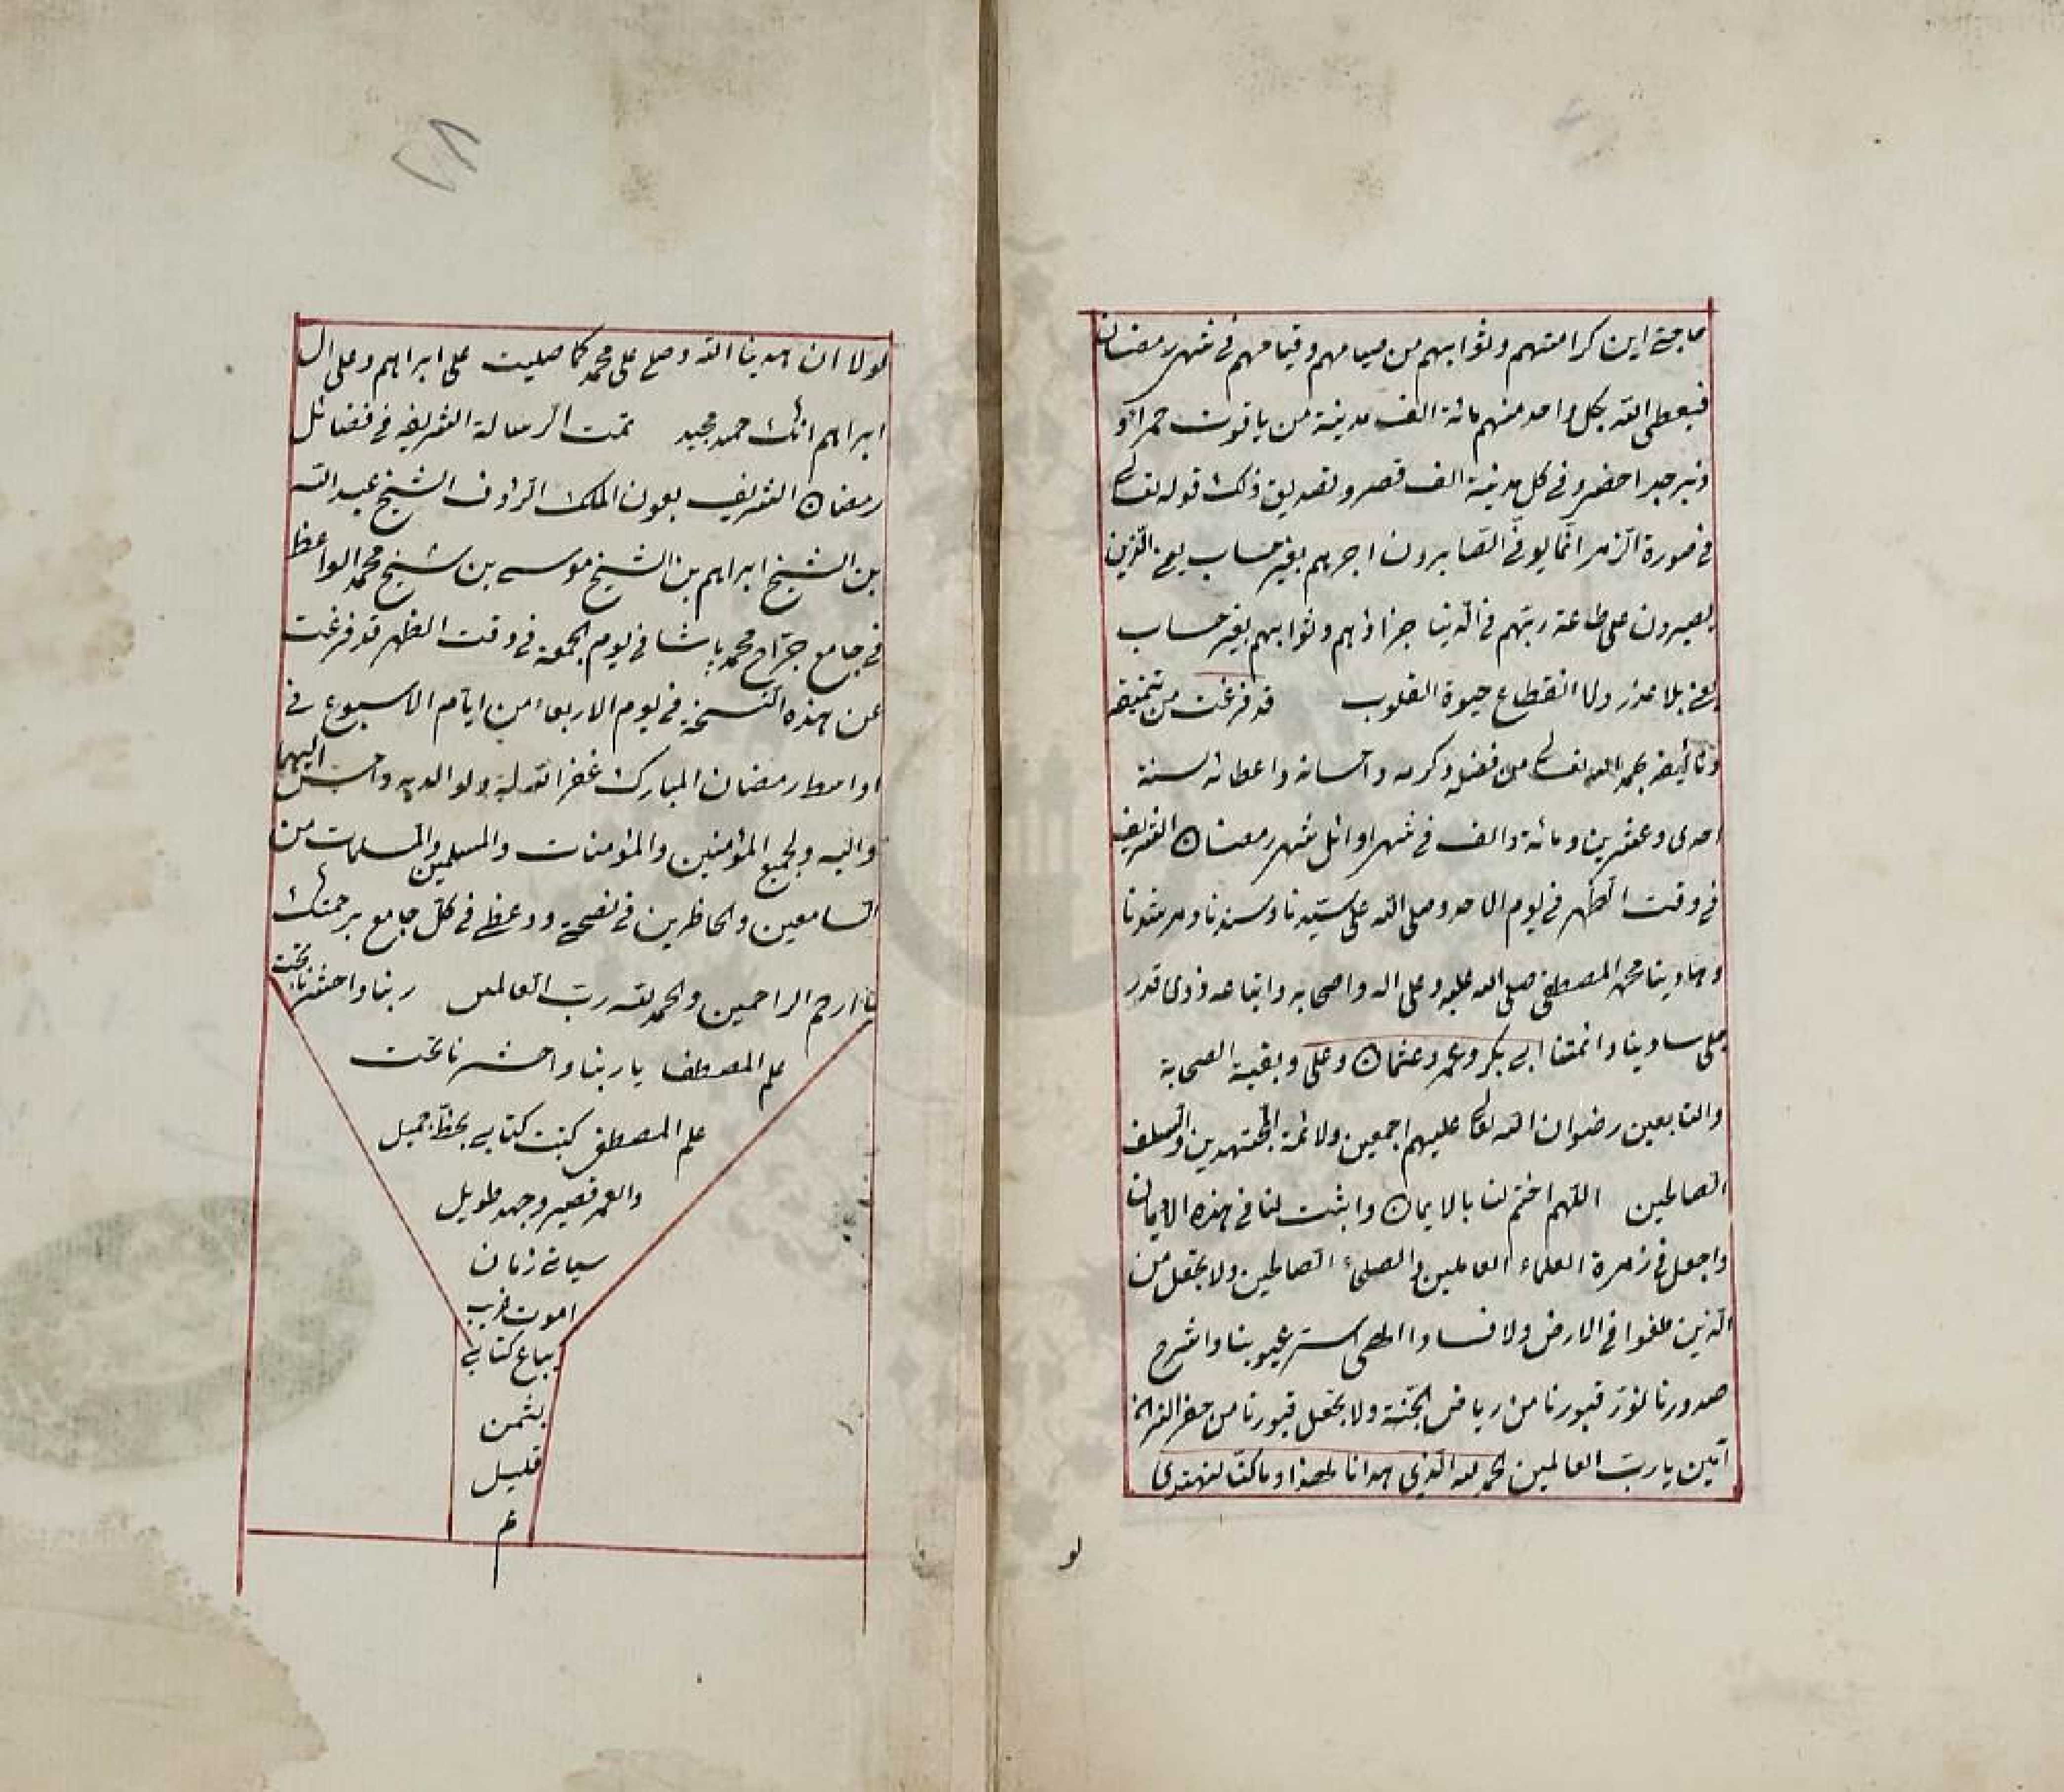 ما جئ اين كرامتهم وثوابهم من صيامهم وقيامهم في شهر رمضان
فيعطى الله بكل واحد منهم مائة الف مدينة من ياقوت حمراء و
زبرجد اخضر وفي كل مدينة الف قصر وتصديق ذلك قوله تعالى
في صورة الزمر انما يوفى الصابرون اجرهم بغير حساب يعني الذين
يصبرون على طاعة ربهم في الدنيا جزاؤهم وثوابهم بغير حساب
يعني بلا عذر ولا انقطاع حيوة القلوب قد فرغت من تنميقه
وتأليفه بحمد الله تعالى من فضله وكرمه واحسانه واعطائه لسنة
احدى وعشرين ومائة والف في شهر اوائل شهر رمضان الشريف
في وقت الظهر في يوم الاحد وصلى الله على سيدنا وسندنا ومرشدنا
وهادينا محمد المصطفى صلى الله عليه وعلى اله واصحابه واتباعه وذوى قدر
على ساديتنا وائمتنا ابى بكر وعمر وعثمان وعلى وبقية الصحابة
والتابعين رضوان الله تعالى عليهم اجمعين ولائمة المجتهدين والسلف
الصالحين اللهم اختم لنا بالايمان وابثت لنا في هذه الايمان
واجعل في زمرة العلماء العاملين والصلحاء الصالحين ولا تجعل من
الذين طغوا في الارض ولا فسادا الهى استر عيوبنا واشرح
صدورنا نور قبورنا من رياض الجنة ولا تجعل قبورنا من حفر النيران
آمين يا رب العالمين الحمد لله الذى هدانا لهذا وما كنا لنهتدى
لو
٧٨
لولا ان هدينا الله وصل على محمد كما صليت على ابراهيم وعلى ال
ابراهيم انك حميد مجيد تمت الرسالة الشريفه في فضائل
رمضان الشريف بعون الملك الرؤف الشيخ عبد الله
بن الشيخ ابراهيم بن الشيخ موسى بن شيخ محمد الواعظ
في جامع جراح محمد پاشا في يوم الجمعة في وقت الظهر قد فرغت
عن هذه النسخة في يوم الاربعاء من ايام الاسبوع في
اواسط رمضان المبارك غفر الله له ولوالديه واحسن اليهما
واليه ولجميع المؤمنين والمؤمنات والمسلمين والمسلمات من
السامعين والحاظرين في نصيحتي ووعظي في كل جامع برحمتك
يا ارحم الراحمين والحمد لله رب العالمين ربنا واحشرنا تحت
علم المصطفى يا ربنا واحشرنا تحت
علم المصطفى كتبت كتابي بخط جميل
والعمر قصير وجهد طويل
سيأتي زمان
اموت غريب
يباع كتابي
بثمن
قليل
م